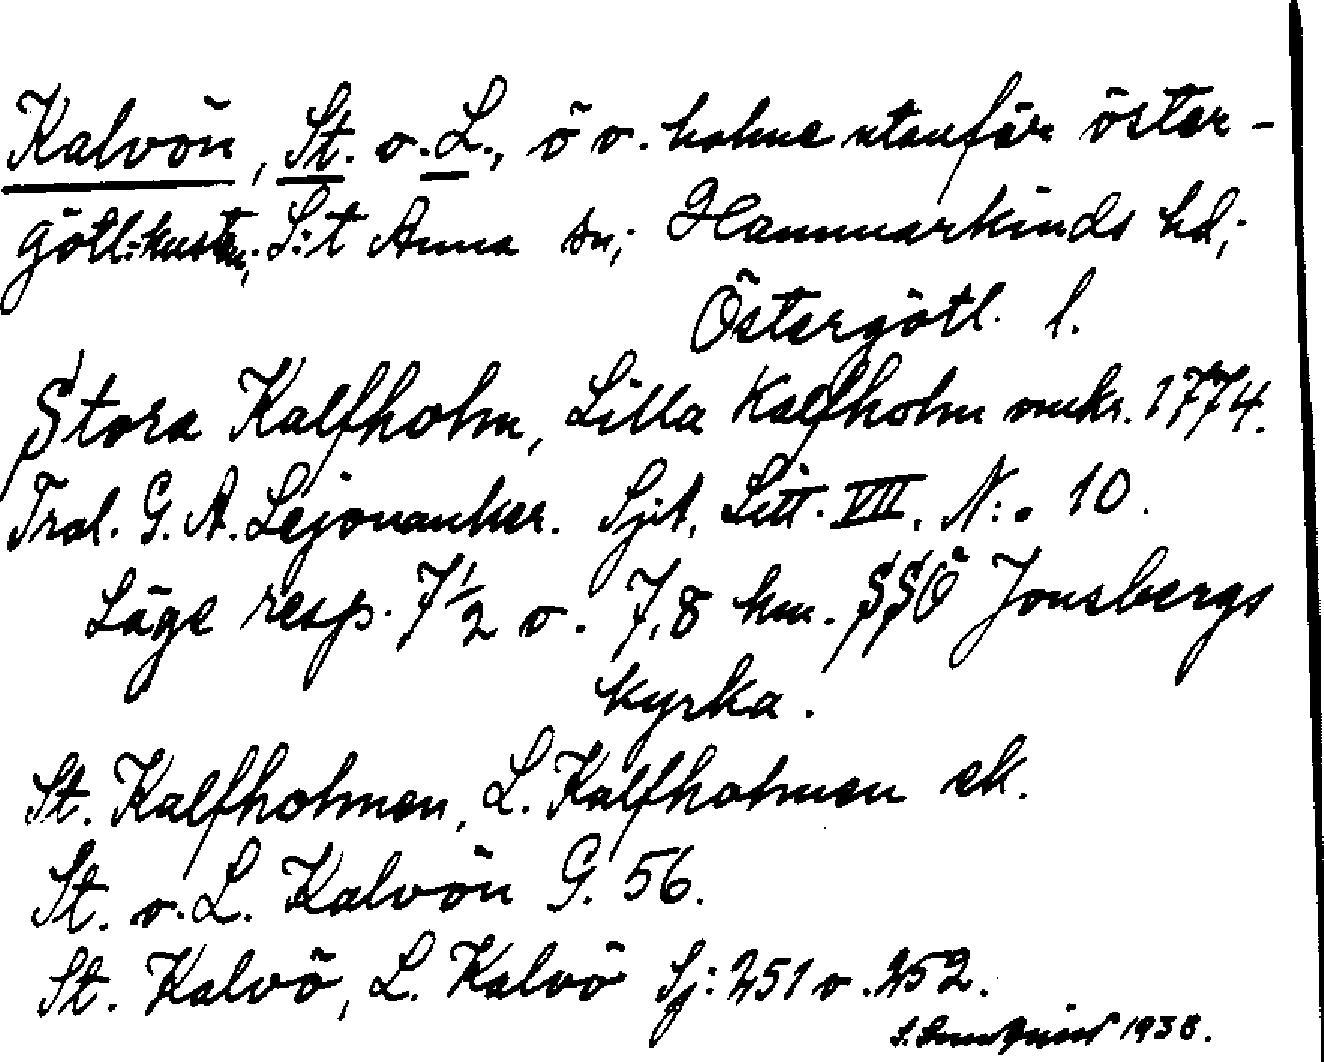 Kalvön, St. o. L., ö o. holme utanför öster-
götl:kusten; S:t Anna sn; Hammarkinds hd;
Östergötl. l.
Stora Kalfholm, Lilla Kalfholm mnkr. 1774.
Trol. G. A. Lejonanker. Sjit. Litt. VII. N:o 10.
Läge resp. 7½ o. 7,8 km. SSÖ Jonsbergs
kyrka.
St. Kalfholmen, L. Kalfholmen ek.
St. o. L. Kalvön G. 56.
St. Kalvö, L. Kalvö Sj: 251 o. 252.
1938.